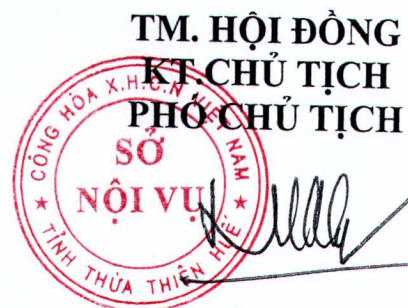 TM. HỘI ĐỒNG
KT. CHỦ TỊCH
PHÓ CHỦ TỊCH
CỘNG HÒA X.H.C.N VIỆT NAM
SỞ
NỘI VỤ
TỈNH THỪA THIÊN HUẾ